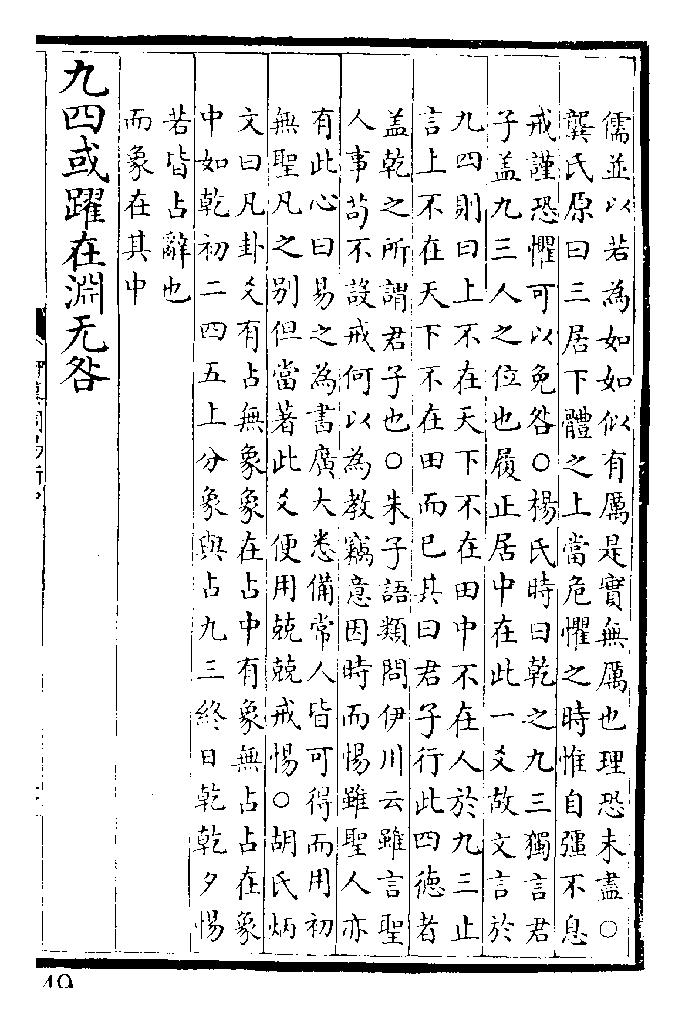 儒並以若為如如似有厲是實無厲也理恐未盡○
龔氏原曰三居下體之上當危懼之時惟自彊不息
戒謹恐懼可以免咎○楊氏時曰乾之九三獨言君
子盖九三人之位也履正居中在此一爻故文言於
九四則曰上不在天下不在田中不在人於九三止
言上不在天下不在田而已其曰君子行此四德者
盖乾之所謂君子也○朱子語類問伊川云雖言聖
人事茍不設戒何以為教竊意因時而惕雖聖人亦
有此心曰易之為書廣大悉備常人皆可得而用初
無聖凡之别但當著此爻便用兢兢戒惕○胡氏炳
文曰凡卦爻有占無象象在占中有象無占占在象
中如乾初二四五上分象與占九三終日乾乾夕惕
若皆占辭也
而象在其中
九四或躍在淵无咎
49